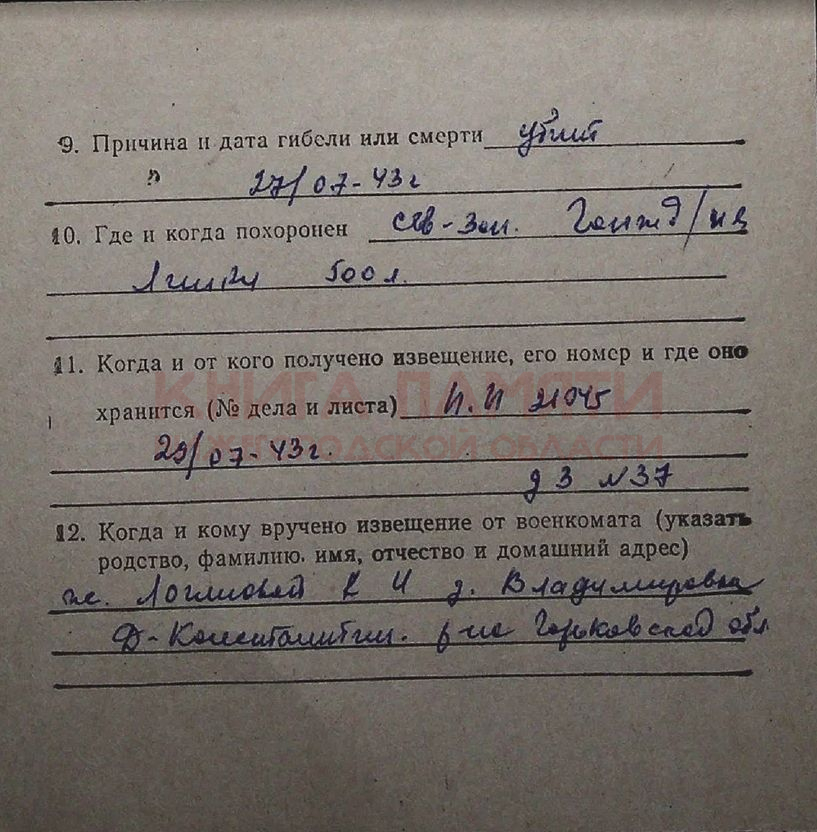 9. Причина и дата гибели или смерти убит
" 27/07-43г
10. Где и когда похоронен сев-зап.
500 л.
11. Когда и от кого получено извещение, его номер и где оно
КНИГА ПАМЯТИ
хранится (№ дела и листа) П.П 21045
НИЖЕГОРОДСКОЙ ОБЛАСТИ
29/07-43г.
д 3 №37
12. Когда и кому вручено извещение от военкомата (указать
родство, фамилию, имя, отчество и домашний адрес)
ж. д. Владимировка
Д-Константин. р-на Горьковской обл